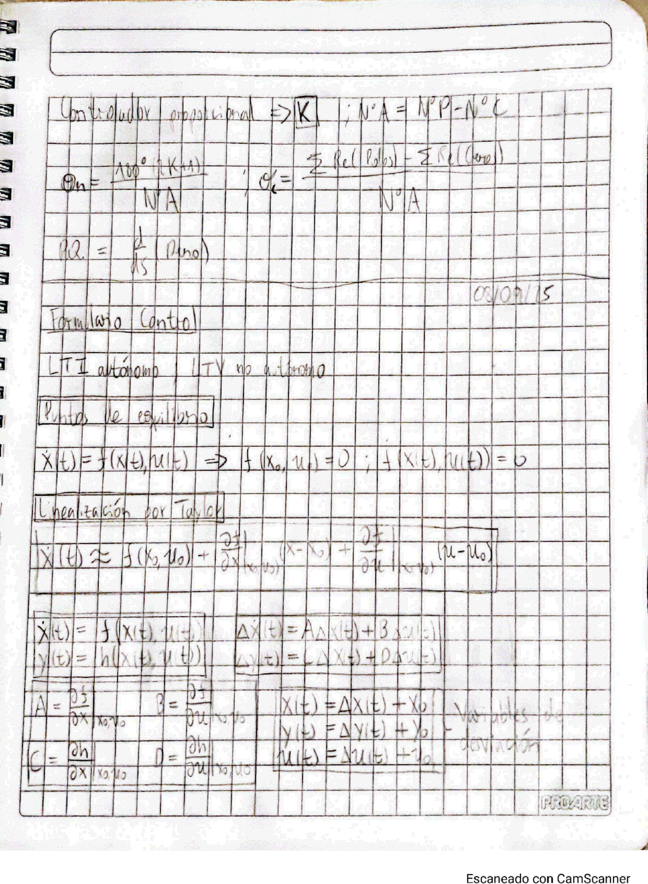 Controlador proporcional ⇒ K ; N°A = N°P - N°C
θn = 180° (2K+1) / N°A ; σc = Σ Re(Polos) - Σ Re(Ceros) / N°A
= d/ds
Formulario Control
LTI autónomo / LTV no autónomo
Puntos de equilibrio
ẋ(t) = f(x(t), u(t)) ⇒ f(x₀, u₀) = 0 ; f(x(t), u(t)) = 0
Linealización por Taylor
ẋ(t) ≈ f(x₀, u₀) + ∂f/∂x|x₀,u₀ (x-x₀) + ∂f/∂u|x₀,u₀ (u-u₀)
ẋ(t) = f(x(t), u(t)) Δẋ(t) = AΔx(t) + BΔu(t)
y(t) = h(x(t), u(t)) Δy(t) = CΔx(t) + DΔu(t)
A = ∂f/∂x|x₀,u₀ B = ∂f/∂u|x₀,u₀
C = ∂h/∂x|x₀,u₀ D = ∂h/∂u|x₀,u₀
x(t) = Δx(t) + x₀
y(t) = Δy(t) + y₀
u(t) = Δu(t) + u₀
- Variables de
desviación
PROARTE
Escaneado con CamScanner